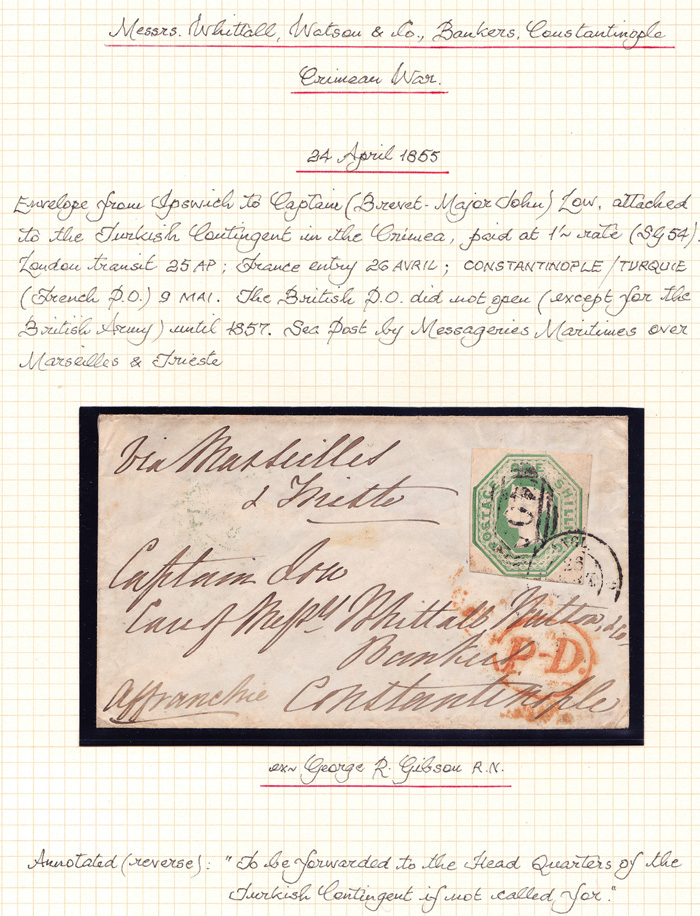 Messrs. Whittall, Watson & Co., Bankers, Constantinople
Crimean War.
24 April 1855
Envelope from Ipswich to Captain (Brevet-Major John) Low, attached
to the Turkish Contingent in the Crimea, paid at 1/~ rate (SG 54).
London transit 25 AP; France entry 26 AVRIL; CONSTANTINOPLE/TURQUIE
(French P.O.) 9 MAI. The British P.O. did not open (except for the
British Army) until 1857. Sea Post by Messageries Maritimes over
Marseilles & Trieste
Via Marseilles
& Trieste
POSTAGE ONE SHILLING
Captain Low
Care of Messrs Whittall Watson, & Co,
Bankers
P-D.
Affranchie Constantinople
ex~ George R. Gibson R.N.
Annotated (reverse): "To be forwarded to the Head Quarters of the
Turkish Contingent if not called for."